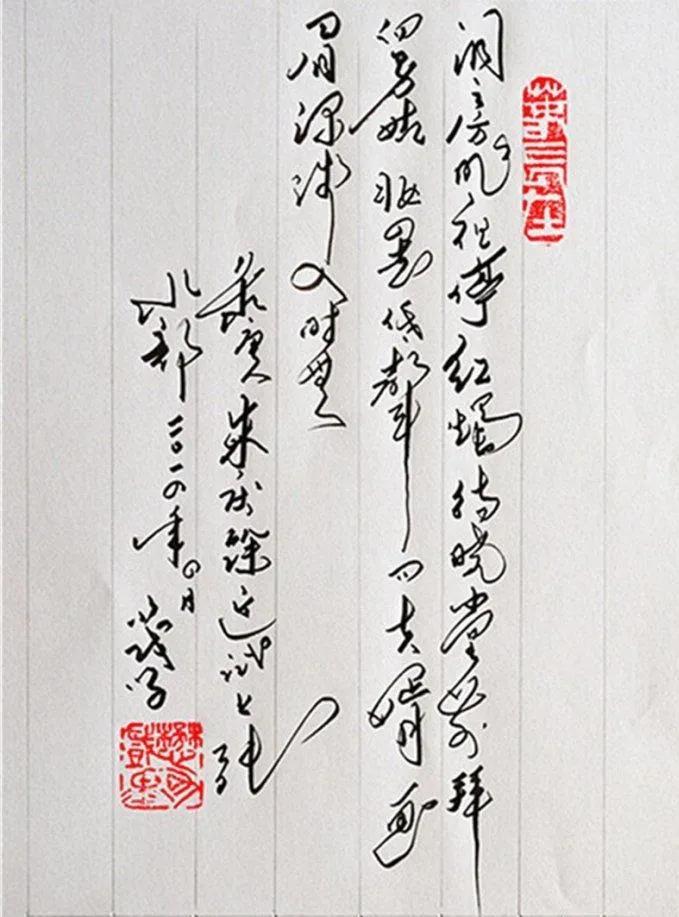 洞房昨夜停红燭待晓堂前拜
舅姑妆罢低聲问夫婿画
眉深浅入时無
录唐人朱庆馀近试上张
水部二〇一四年四月